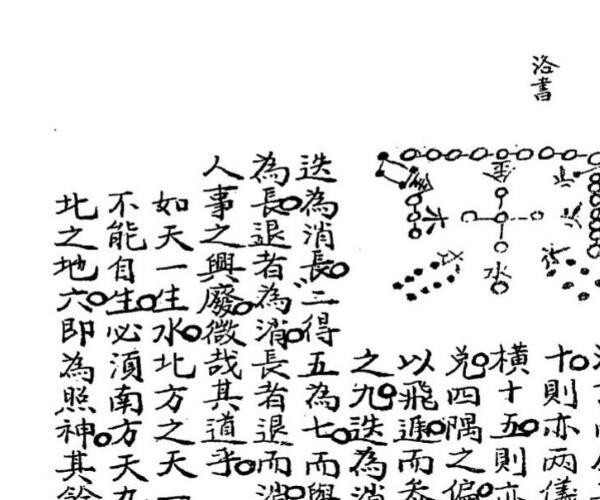 洛書
十則亦两儀
橫十五則亦
兌四隅之偏
以飛遁而參
之九迭為消
迭為消長二得五為七而與
為長退者為消長者退而消
人事之興廢微哉其道乎
如天一生水北方之天一
不能自生必湏南方天九
北之地六即為照神其餘
水
火
木